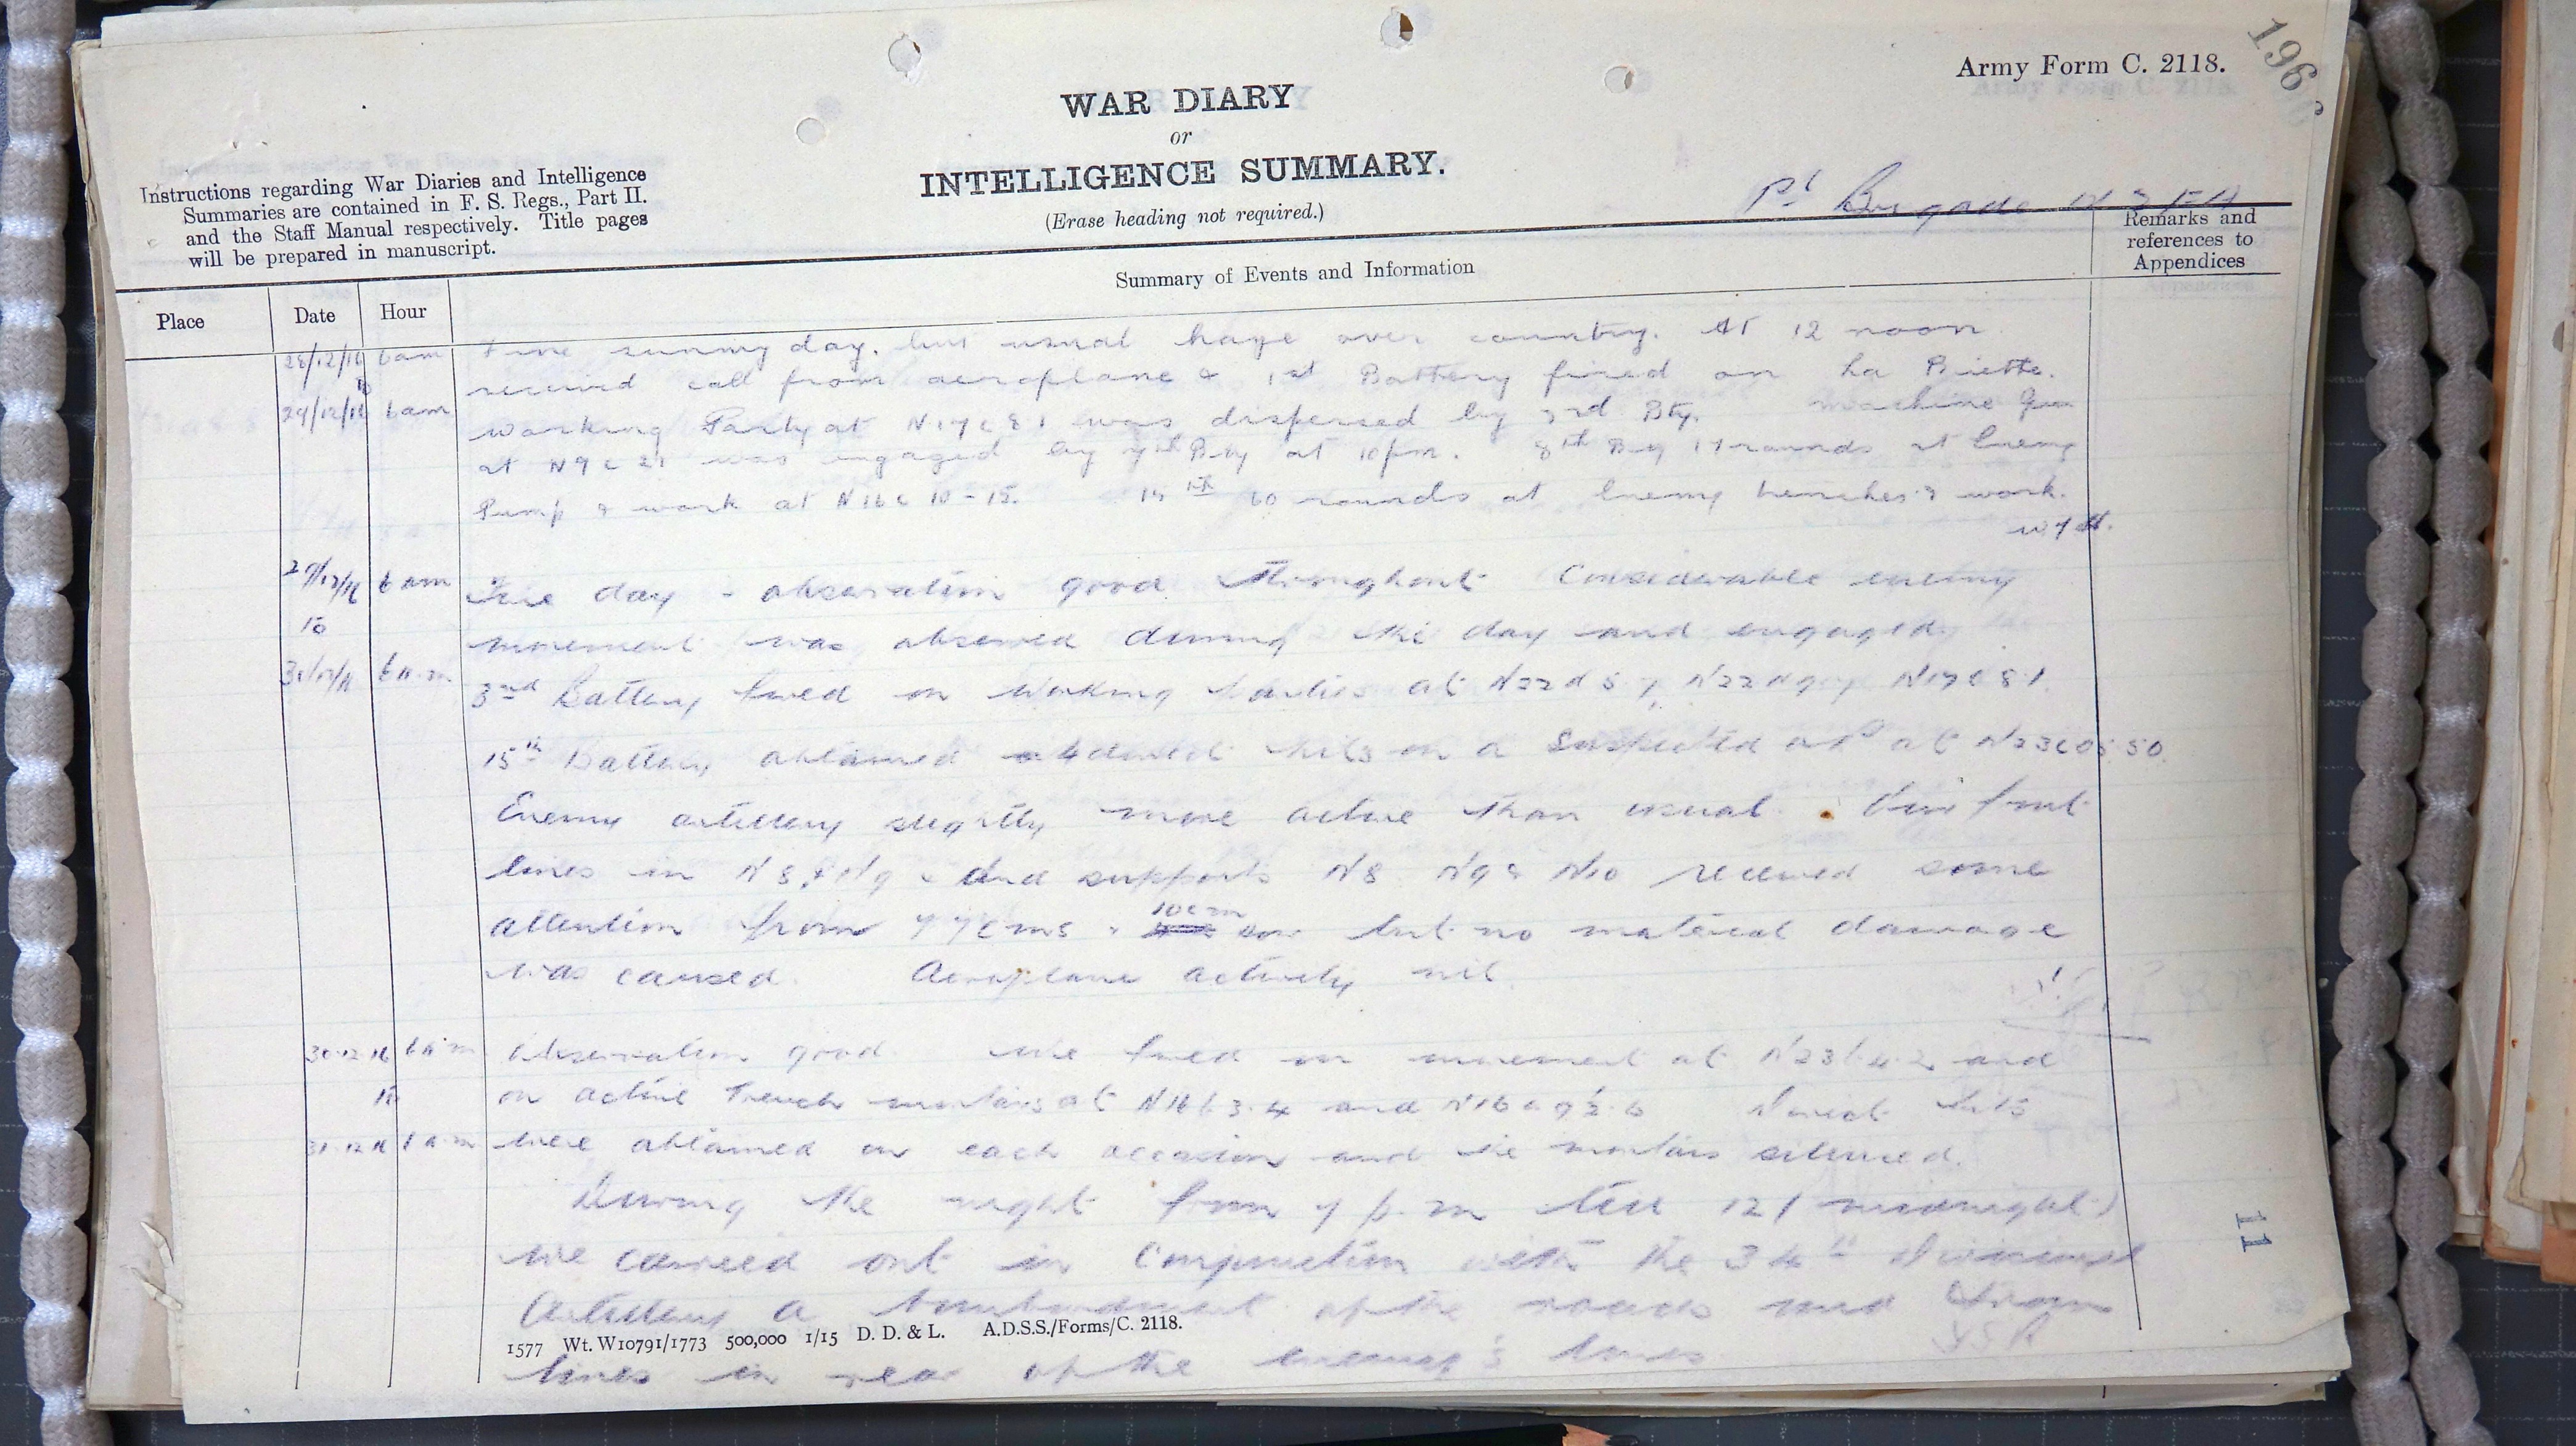 196
Army Form C. 2118.
WAR DIARY
or
INTELLIGENCE SUMMARY.
(Erase heading not required.)
Instructions regarding War Diaries and Intelligence
Summaries are contained in F. S. Regs., Part II.
and the Staff Manual respectively. Title pages
will be prepared in manuscript.
Brigade
Remarks and
references to
Appendices
Summary of Events and Information
Place Date Hour
28/12/16 6am Fine sunny day. but usual haze over country. At 12 noon
to received call from aeroplane & 1st Battery fired on La
29/12/16 6am Working Party at N17c81 was dispersed by 3rd Bty. Machine Gun
at N9c was engaged by 7th Bty at 10pm. 8th Bty 17 rounds at Enemy
Pump & work at N16c 10-15. 15th 60 rounds at Enemy trenches & work.
29/12/16 6am day - observation good throughout Considerable enemy
to movement was observed during the day and engaged
6 a.m 3rd Battery fired on Working Parties at N22d N17c8.1.
15th Battery obtained 4 direct hits on a Suspected at N23c05.50.
Enemy artillery slightly more active than usual. Our front
lines in N8 & N9 and supports N8 N9 & N10 received some
attention from 77cms 10cm but no material damage
was caused. Aeroplane activity nil.
30.12.16 6 a.m Observation good. We fired on movement at N23b4.2 and
to on active Trench mortars at N16b3.4 and Direct hits
31.12.16 6 a.m were obtained on each occasion and the mortars silenced.
During the night from 7 p.m till 12 (midnight)
We carried out in conjunction with the 34th Divisional
Artillery a bombardment of the roads and
1577 Wt. W10791/1773 500,000 1/15 D. D. & L. A.D.S.S./Forms/C. 2118.
lines in rear of the enemy's lines
11